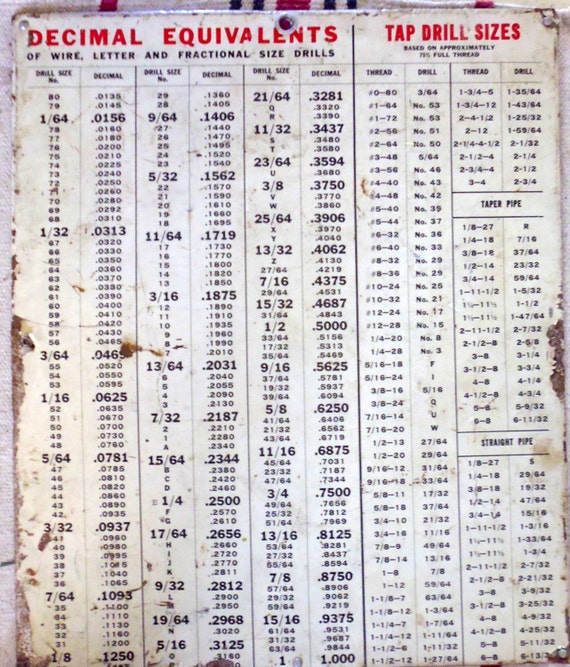 DECIMAL EQUIVALENTS
OF WIRE, LETTER AND FRACTIONAL SIZE DRILLS
DRILL SIZE No. DECIMAL
80 .0135
79 .0145
1/64 .0156
78 .0160
77 .0180
76 .0200
75 .0210
74 .0225
73 .0240
72 .0250
71 .0260
70 .0280
69 .0292
68 .0310
1/32 .0313
67 .0320
66 .0330
65 .0350
64 .0360
63 .0370
62 .0380
61 .0390
60 .0400
59 .0410
58 .0420
57 .0430
56 .0465
3/64 .0469
55 .0520
54 .0550
53 .0595
1/16 .0625
52 .0635
51 .0670
50 .0700
49 .0730
48 .0760
5/64 .0781
47 .0785
46 .0810
45 .0820
44 .0860
43 .0890
42 .0935
3/32 .0937
41 .0960
40 .0980
39 .0995
38 .1015
37 .1040
36 .1065
7/64 .1093
35 .1100
34 .1110
33 .1130
32 .1160
31 .1200
1/8 .1250
DRILL SIZE No. DECIMAL
29 .1360
28 .1405
9/64 .1406
27 .1440
26 .1470
25 .1495
24 .1520
23 .1540
5/32 .1562
22 .1570
21 .1590
20 .1610
19 .1660
18 .1695
11/64 .1719
17 .1730
16 .1770
15 .1800
14 .1820
13 .1850
3/16 .1875
12 .1890
11 .1910
10 .1935
9 .1960
8 .1990
7 .2010
13/64 .2031
6 .2040
5 .2055
4 .2090
3 .2130
7/32 .2187
2 .2210
1 .2280
A .2340
15/64 .2344
B .2380
C .2420
D .2460
E 1/4 .2500
F .2570
G .2610
17/64 .2656
H .2660
I .2720
J .2770
K .2810
9/32 .2812
L .2900
M .2950
19/64 .2968
N .3020
5/16 .3125
O .3160
DRILL SIZE No. DECIMAL
21/64 .3281
Q .3320
R .3390
11/32 .3437
S .3480
T .3580
23/64 .3594
U .3680
3/8 .3750
V .3770
W .3860
25/64 .3906
X .3970
Y .4040
13/32 .4062
Z .4130
27/64 .4219
7/16 .4375
29/64 .4531
15/32 .4687
31/64 .4843
1/2 .5000
33/64 .5156
17/32 .5313
35/64 .5469
9/16 .5625
37/64 .5781
19/32 .5937
39/64 .6094
5/8 .6250
41/64 .6406
21/32 .6562
43/64 .6719
11/16 .6875
45/64 .7031
23/32 .7187
47/64 .7344
3/4 .7500
49/64 .7656
25/32 .7812
51/64 .7969
13/16 .8125
53/64 .8281
27/32 .8437
55/64 .8594
7/8 .8750
57/64 .8906
29/32 .9062
59/64 .9219
15/16 .9375
61/64 .9531
31/32 .9687
63/64 .9844
1 1.000
TAP DRILL SIZES
BASED ON APPROXIMATELY
75% FULL THREAD
THREAD DRILL
#0–80 3/64
#1–64 No. 53
#1–72 No. 53
#2–56 No. 51
#2–64 No. 50
#3–48 5/64
#3–56 No. 46
#4–40 No. 43
#4–48 No. 42
#5–40 No. 39
#5–44 No. 37
#6–32 No. 36
#6–40 No. 33
#8–32 No. 29
#8–36 No. 29
#10–24 No. 25
#10–32 No. 21
#12–24 No. 17
#12–28 No. 15
1/4–20 No. 8
1/4–28 No. 3
5/16–18 F
5/16–24 I
3/8–16 5/16
3/8–24 Q
7/16–14 U
7/16–20 W
1/2–13 27/64
1/2–20 29/64
9/16–12 31/64
9/16–18 33/64
5/8–11 17/32
5/8–18 37/64
3/4–10 21/32
3/4–16 11/16
7/8–9 49/64
7/8–14 13/16
1–8 7/8
1–12 59/64
1-1/8–7 63/64
1-1/8–12 1-3/64
1-1/4–7 1-7/64
1-1/4–12 1-11/64
THREAD DRILL
1-3/4–5 1-35/64
1-3/4–12 1-43/64
2–4-1/2 1-25/32
2–12 1-59/64
2-1/4–4-1/2 2-1/32
2-1/2–4 2-1/4
2-3/4–4 2-1/2
3–4 2-3/4
TAPER PIPE
1/8–27 R
1/4–18 7/16
3/8–18 37/64
1/2–14 23/32
3/4–14 59/64
1–11-1/2 1-5/32
1¼–11½ 1-1/2
1½–11½ 1-47/64
2–11-1/2 2-7/32
2-1/2–8 2-5/8
3–8 3-1/4
3-1/2–8 3-3/4
4–8 4-1/4
4-1/2–8 4-3/4
5–8 5-9/32
6–8 6-11/32
STRAIGHT PIPE
1/8–27 S
1/4–18 29/64
3/8–18 19/32
1/2–14 47/64
3/4–14 15/16
1–11-1/2 1-3/16
1¼–11½ 1-33/64
1½–11½ 1-3/4
2–11-1/2 2-7/32
2-1/2–8 2-21/32
3–8 3-9/32
3-1/2–8 3-25/32
4–8 4-9/32
4-1/2–8 4-25/32
5–8 5-11/32
6–8